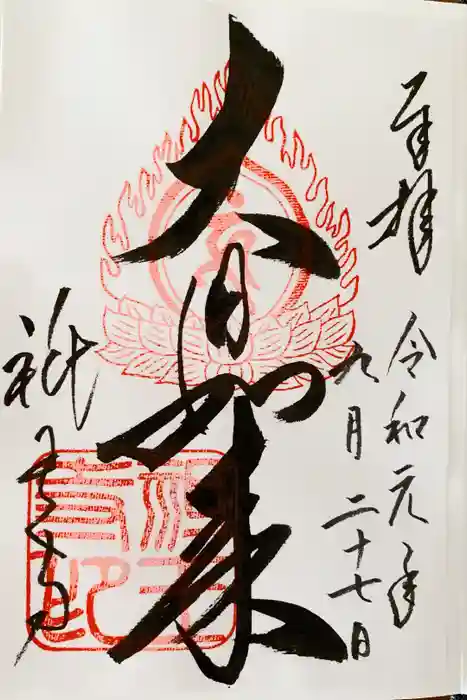 奉拝
令和元年
九月二十七日
大日如来
祇王寺